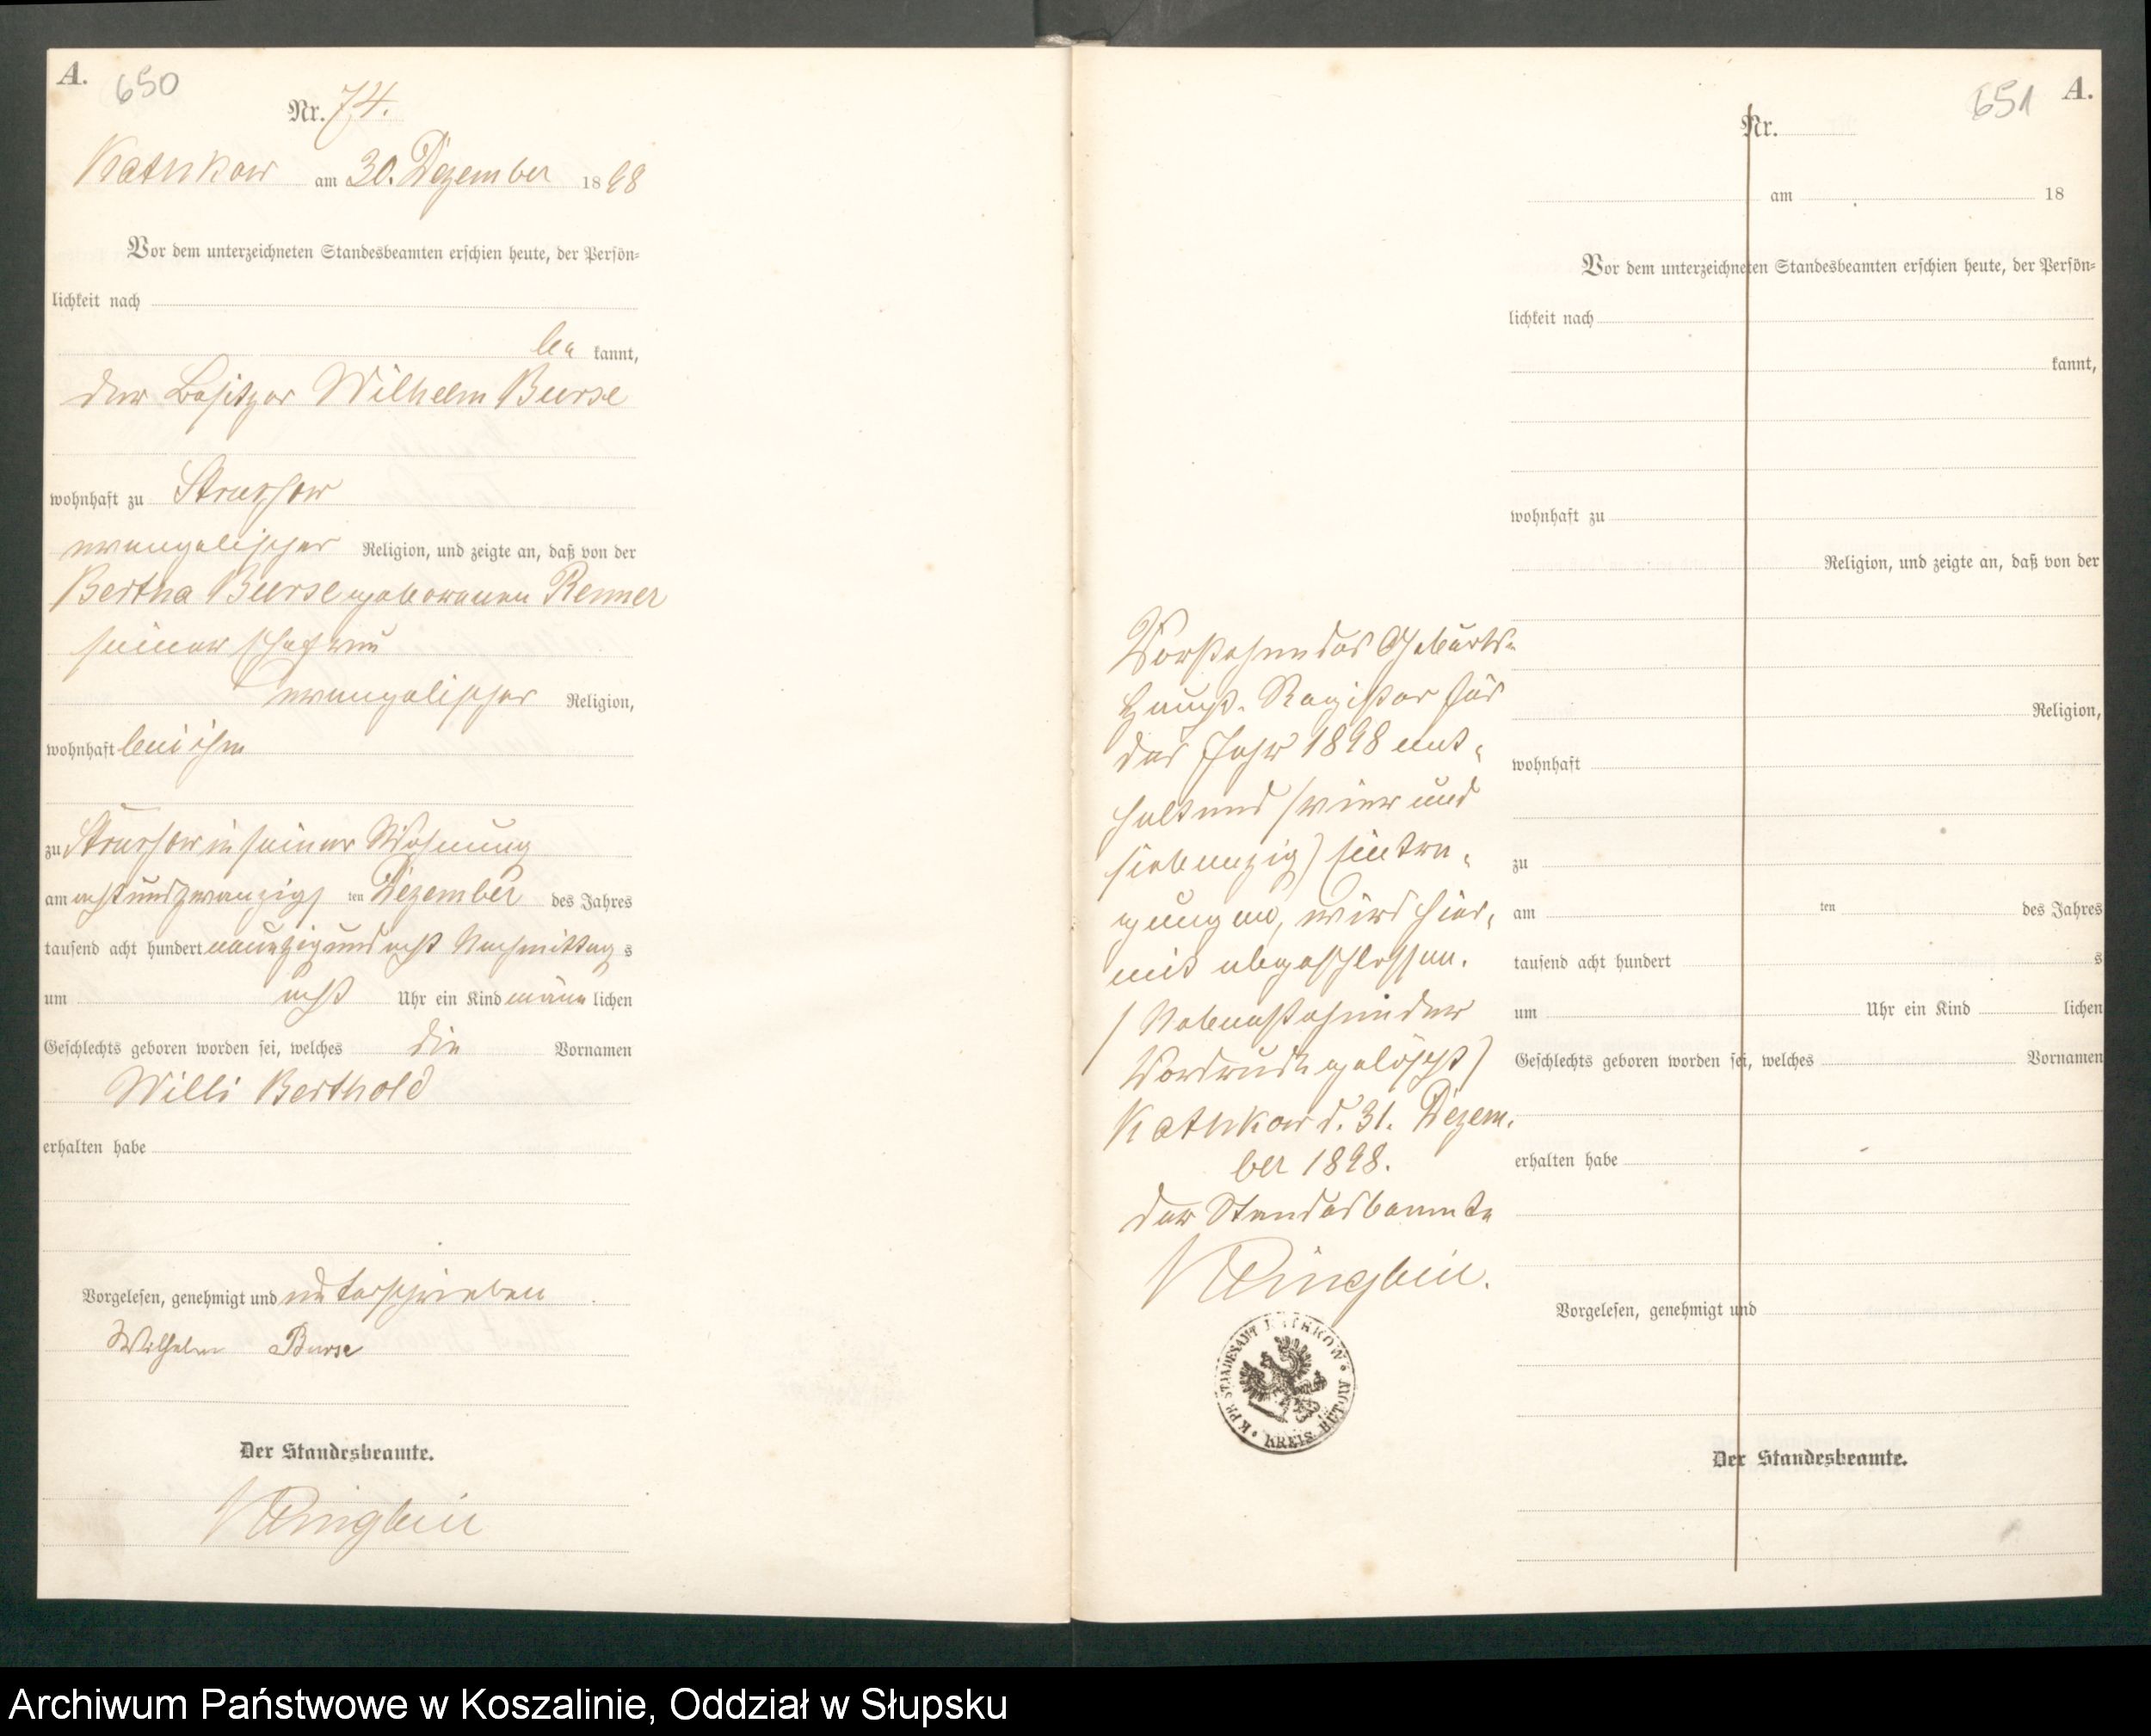 A.
650
Nr. 74.
Kathkow am 30. Dezember 1898
Vor dem unterzeichneten Standesbeamten erschien heute, der Persön=
lichkeit nach
be kannt,
der Besitzer Wilhelm Burse
wohnhaft zu Struszow
evangelischer Religion, und zeigte an, daß von der
Bertha Burse geborenen Renner
seiner Ehefrau
evangelischer Religion,
wohnhaft bei ihm
zu Struszow in seiner Wohnung
am acht und zwanzigs ten Dezember des Jahres
tausend acht hundert neunzig und acht Nachmittag s
um acht Uhr ein Kind männ lichen
Geschlechts geboren worden sei, welches die Vornamen
Willi Berthold
erhalten habe
Vorgelesen, genehmigt und unterschrieben
Wilhelm Burse
Der Standesbeamte.
651
A.
Nr.
am 18
Vor dem unterzeichneten Standesbeamten erschien heute, der Persön=
lichkeit nach
kannt,
wohnhaft zu
Religion, und zeigte an, daß von der
Religion,
wohnhaft
zu
am ten des Jahres
tausend acht hundert s
um Uhr ein Kind lichen
Geschlechts geboren worden sei, welches Vornamen
erhalten habe
Vorgelesen, genehmigt und
Der Standesbeamte.
Vorstehendes Geburts=
Haupt-Register für
das Jahr 1898 ent=
haltend (vier und
siebenzig) Eintra=
gungen, wird hier=
mit abgeschlossen.
(Nebenstehender
Vordruck gelöscht)
Kathkow d. 31. Dezem=
ber 1898.
Der Standesbeamte
K. PR. STANDESAMT KATHKOW
KREIS BÜTOW
Archiwum Państwowe w Koszalinie, Oddział w Słupsku